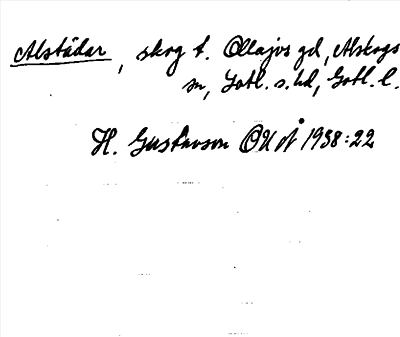 Alstädar, skog t. Ollajvs gd, Alskogs
sn, Gotl. s. hd, Gotl. l.
H. Gustavson OUÅ 1938:22